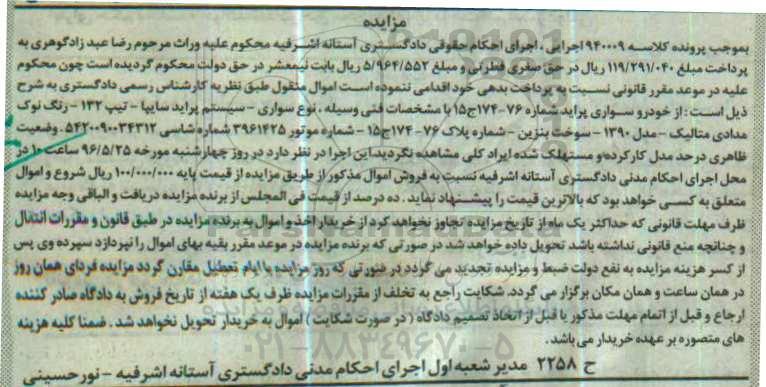 مزایده
بموجب پرونده کلاسه ۹۴۰۰۰۹ اجرایی، اجرای احکام حقوقی دادگستری آستانه اشرفیه محکوم علیه وراث مرحوم رضا عبد زادگوهری به
پرداخت مبلغ ۱۱۹/۲۹۱/۰۴۰ ریال در حق صفری فطرتی و مبلغ ۵/۹۶۴/۵۵۲ ریال بابت نیمعشر در حق دولت محکوم گردیده است چون محکوم
علیه در موعد مقرر قانونی نسبت به پرداخت بدهی خود اقدامی ننموده است اموال منقول طبق نظریه کارشناس رسمی دادگستری به شرح
ذیل است: از خودرو سواری پراید شماره ۷۶-۱۷۴ج۱۵ با مشخصات فنی وسیله، نوع سواری - سیستم پراید سایپا - تیپ ۱۳۲ - رنگ نوک
مدادی متالیک - مدل ۱۳۹۰ - سوخت بنزین - شماره پلاک ۷۶-۱۷۴ج۱۵ - شماره موتور ۳۹۶۱۴۲۵ شماره شاسی ۵۴۲۰۰۹۰۰۳۴۳۱۲. وضعیت
ظاهری در حد مدل کارکرده و مستهلک شده ایراد کلی مشاهده نگردید این اجرا در نظر دارد در روز چهارشنبه مورخه ۹۶/۵/۲۵ ساعت ۱۰ در
محل اجرای احکام مدنی دادگستری آستانه اشرفیه نسبت به فروش اموال مذکور از طریق مزایده از قیمت پایه ۱۰۰/۰۰۰/۰۰۰ ریال شروع و اموال
متعلق به کسی خواهد بود که بالاترین قیمت را پیشنهاد نماید. ده درصد از قیمت فی المجلس از برنده مزایده دریافت و الباقی وجه مزایده
ظرف مهلت قانونی که حداکثر یک ماه از تاریخ مزایده تجاوز نخواهد کرد از خریدار اخذ و اموال به برنده مزایده در طبق قانون و مقررات انتقال
و چنانچه منع قانونی نداشته باشد تحویل داده خواهد شد در صورتی که برنده مزایده در موعد مقرر بقیه بهای اموال را نپردازد سپرده وی پس
از کسر هزینه مزایده به نفع دولت ضبط و مزایده تجدید می گردد در صورتی که روز مزایده با ایام تعطیل مقارن گردد مزایده فردای همان روز
در همان ساعت و همان مکان برگزار می گردد. شکایت راجع به تخلف از مقررات مزایده ظرف یک هفته از تاریخ فروش به دادگاه صادر کننده
ارجاع و قبل از اتمام مهلت مذکور یا قبل از اتخاذ تصمیم دادگاه (در صورت شکایت) اموال به خریدار تحویل نخواهد شد. ضمنا کلیه هزینه
های متصوره بر عهده خریدار می باشد.
۰۲۱-۸۸۳۴۹۶۷۰-۵
ح ۲۲۵۸ مدیر شعبه اول اجرای احکام مدنی دادگستری آستانه اشرفیه - نور حسینی